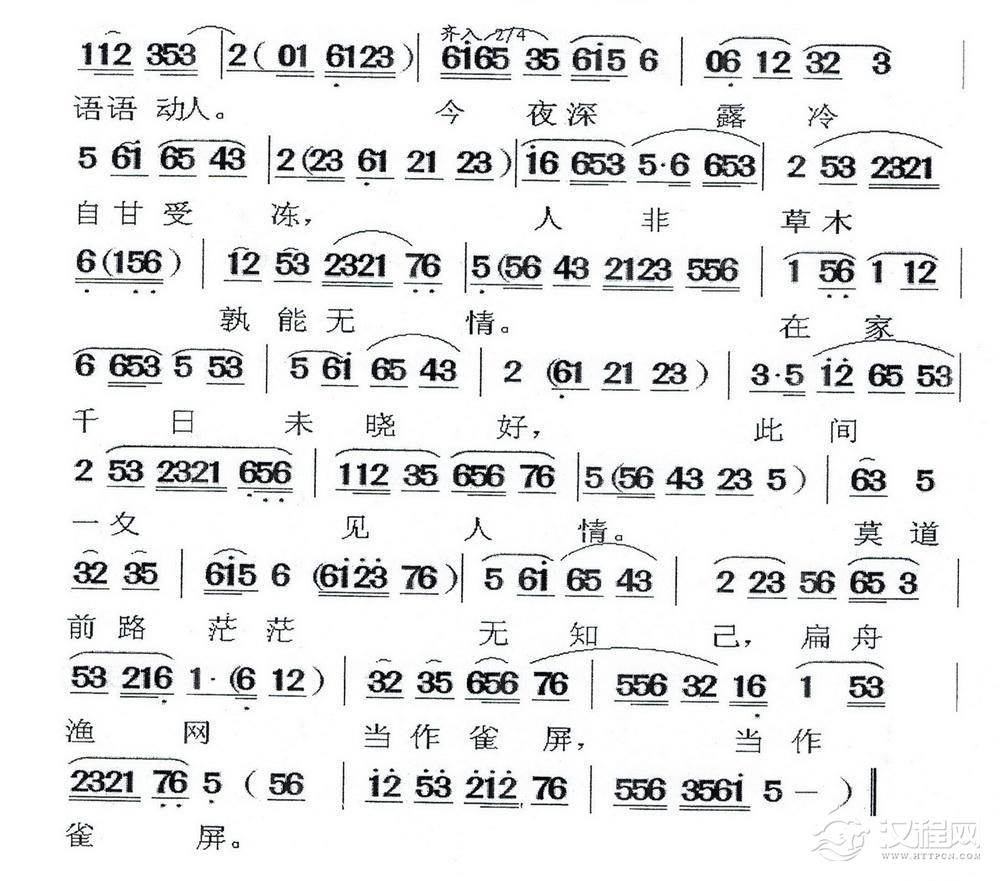 齐入 2/4
112 353 | 2 ( 01 6123 ) | 6165 35 615 6 | 06 12 32 3 |
语语动人。 今 夜深 露 冷
5 61 65 43 | 2 (23 61 21 23) | 16 653 5·6 653 | 2 53 2321 |
自甘受 冻, 人 非 草木
6 (156) | 12 53 2321 76 | 5 (56 43 2123 556 | 1 56 1 12 |
孰能无 情。 在 家
6 653 5 53 | 5 61 65 43 | 2 (61 21 23 ) | 3·5 12 65 53 |
千 日 未晓 好, 此 间
2 53 2321 656 | 112 35 656 76 | 5 (56 43 23 5 ) | 63 5
一夊 见 人 情。 莫道
32 35 | 615 6 (6123 76 ) | 5 61 65 43 | 2 23 56 65 3 |
前路 茫茫 无 知 己, 扁舟
53 216 1· (6 12 ) | 32 35 656 76 | 556 32 16 1 53 |
渔 网 当作雀 屏, 当作
2321 76 5 ( 56 | 12 53 212 76 | 556 3561 5 — ) ‖
雀 屏。
汉程网
WWW.HTTPCN.COM